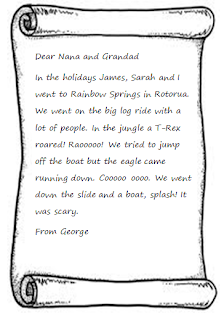 Dear Nana and Grandad
In the holidays James, Sarah and I
went to Rainbow Springs in Rotorua.
We went on the big log ride with a
lot of people. In the jungle a T-Rex
roared! Raooooo! We tried to jump
off the boat but the eagle came
running down. Cooooo oooo. We went
down the slide and a boat, splash! It
was scary.
From George